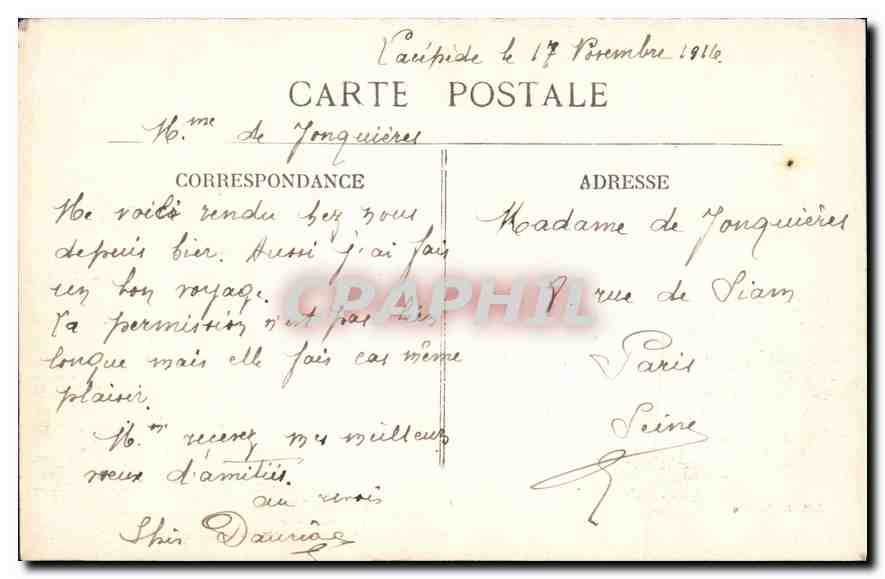 Lacépède le 17 Novembre 1916.
CARTE POSTALE
M.me de Jonquières
CORRESPONDANCE
Me voici rendu hez nous
depuis hier. Aussi j'ai fais
un bon voyage.
La permission n'est pas bien
longue mais elle fais cas même
plaisir.
M.m recevez mes meilleux
vœux d'amitiés.
au revois
Dauriac
ADRESSE
Madame de Jonquières
8 rue de Siam
Paris
Seine
CPAPHIL